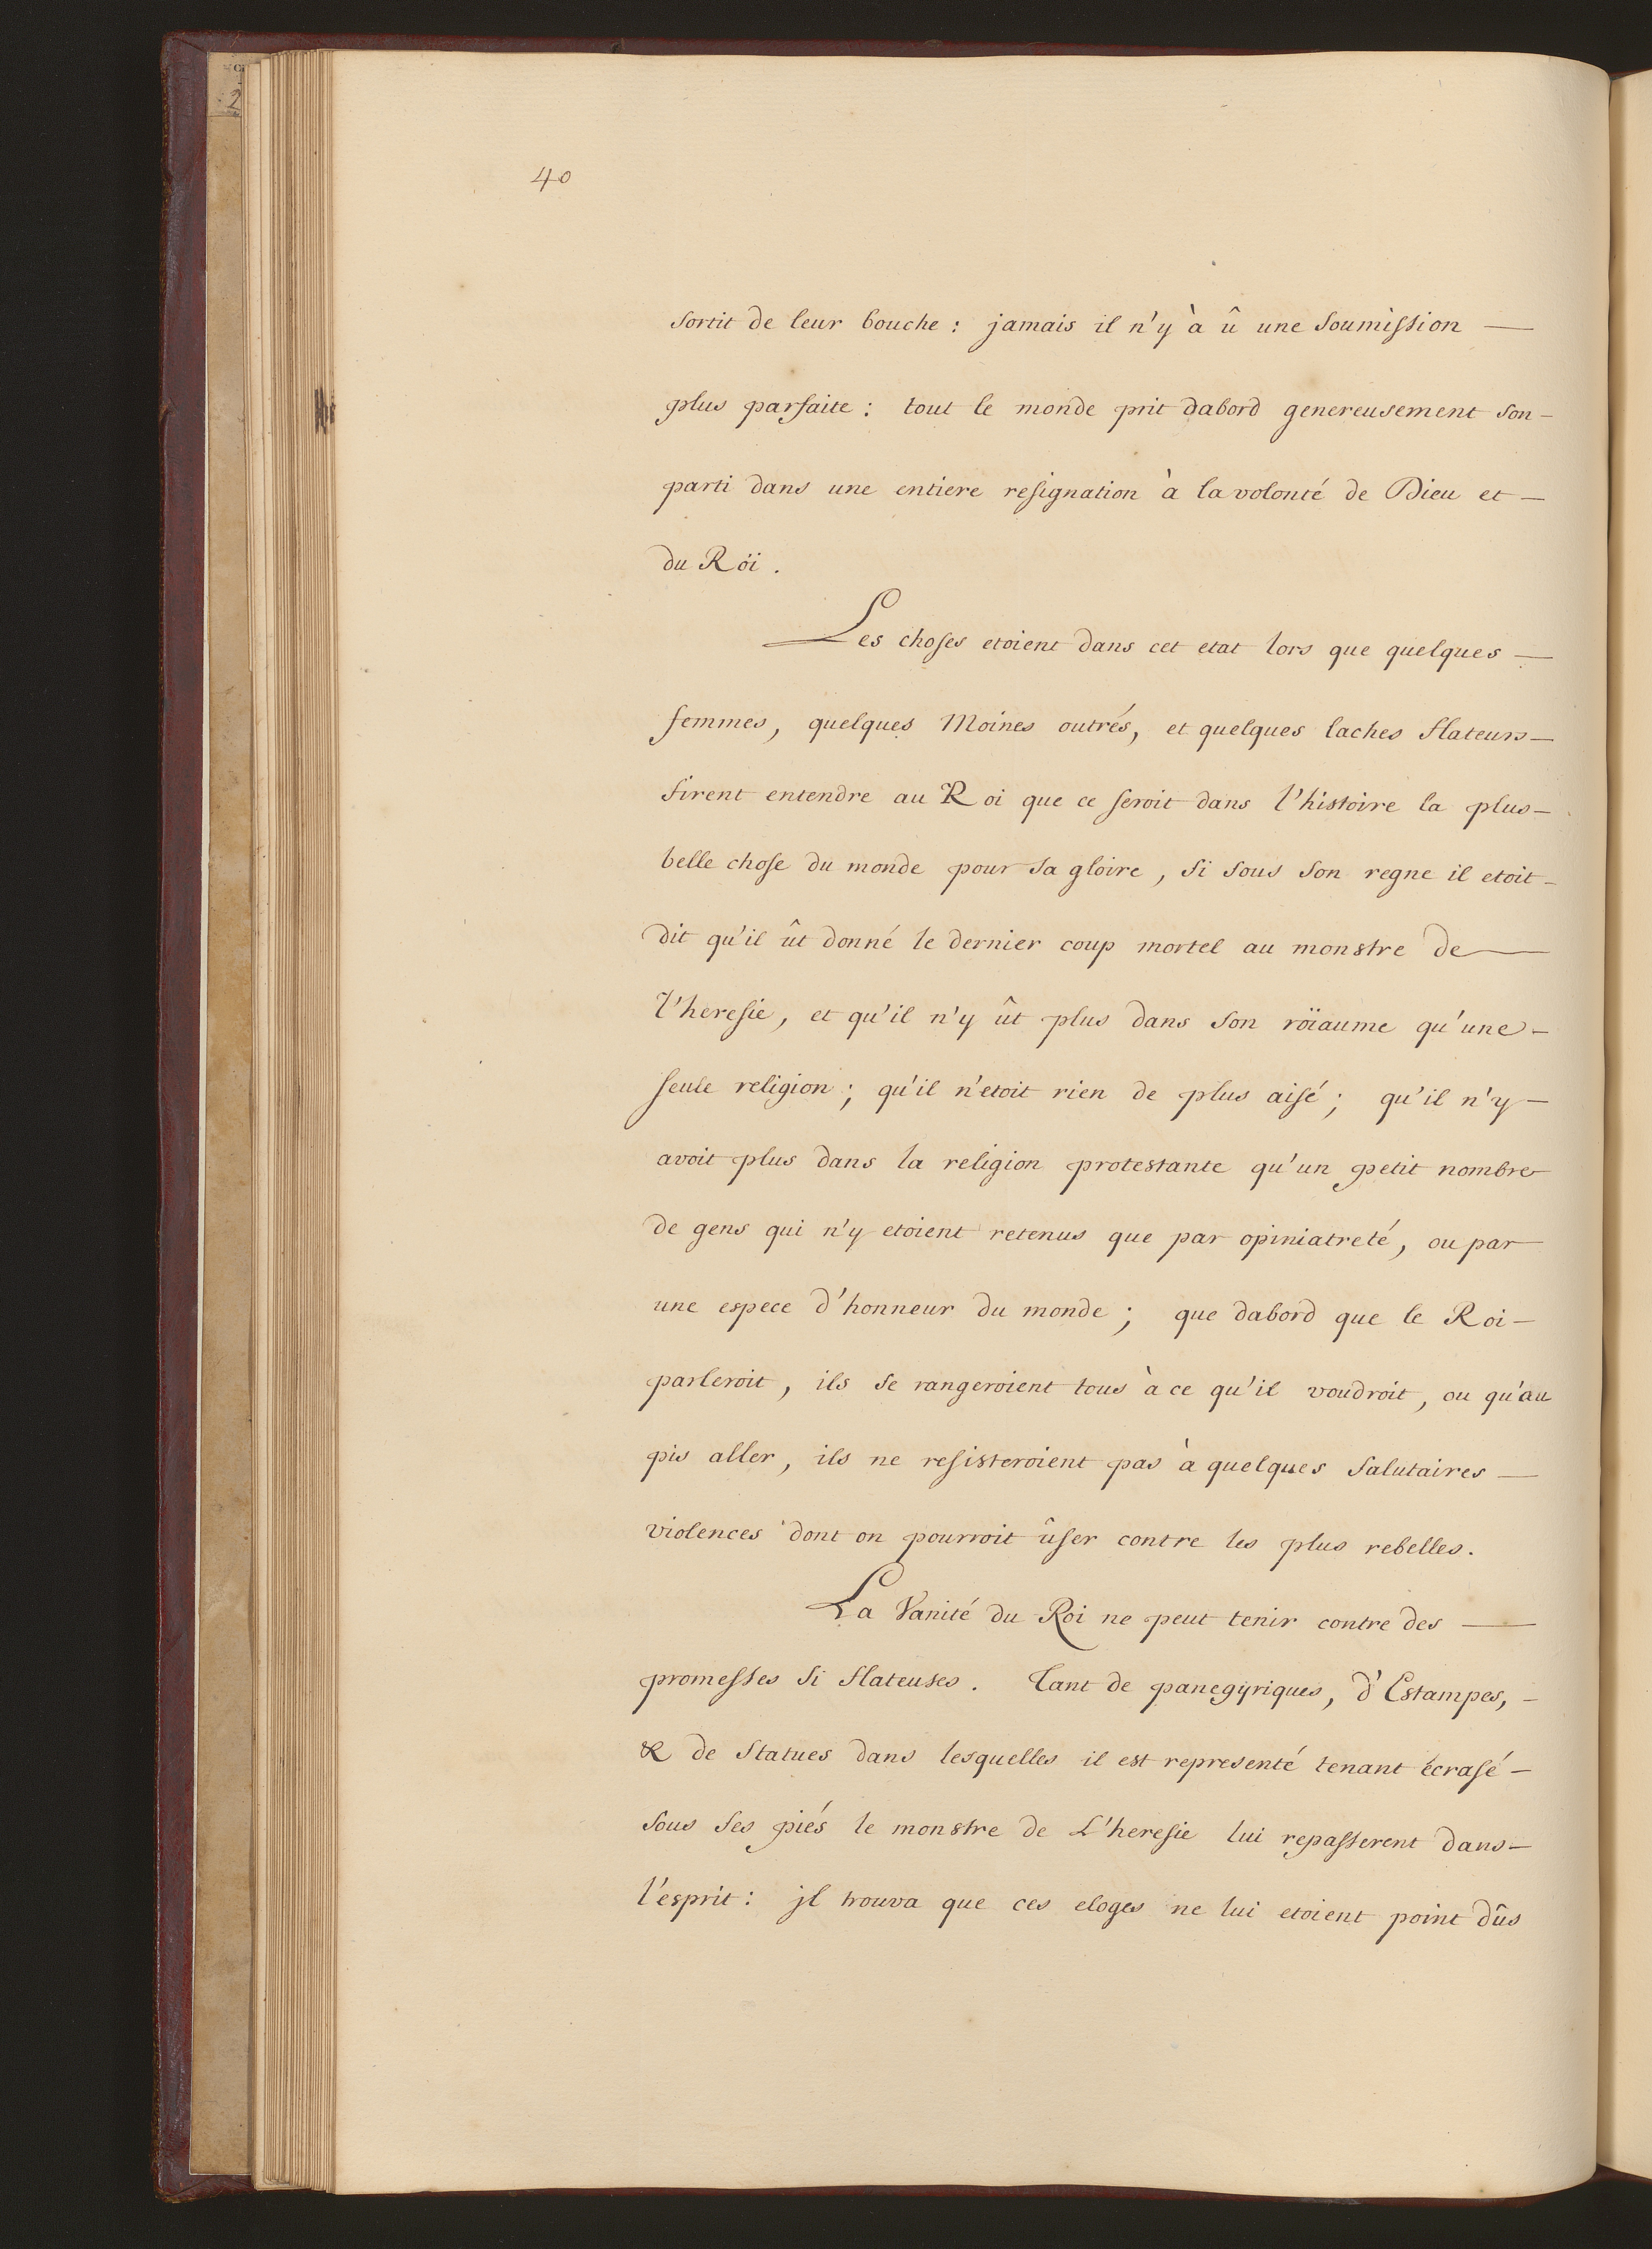 40
sortit de leur bouche : jamais il n'y à û une soumission —
plus parfaite : tout le monde prit dabord genereusement son —
parti dans une entiere resignation à la volonté de Dieu et —
du Röi .
Les choses etoient dans cet etat lors que quelques —
femmes, quelques Moines outrés, et quelques laches flateurs —
firent entendre au Roi que ce seroit dans l'histoire la plus —
belle chose du monde pour sa gloire, si sous son regne il etoit —
dit qu'il ût donné le dernier coup mortel au monstre de —
l'heresie, et qu'il n'y ût plus dans son röiaume qu'une —
seule religion ; qu'il n'etoit rien de plus aisé ; qu'il n'y —
avoit plus dans la religion protestante qu'un petit nombre
de gens qui n'y etoient retenus que par opiniatreté, ou par
une espece d'honneur du monde ; que dabord que le Roi —
parleroit, ils se rangeroient tous à ce qu'il voudroit, ou qu'au
pis aller, ils ne resisteroient pas à quelques salutaires —
violences dont on pourroit ûser contre les plus rebelles.
La Vanité du Roi ne peut tenir contre des —
promesses si flateuses. Tant de panegyriques, d'Estampes, —
& de statues dans lesquelles il est representé tenant écrasé —
sous ses piés le monstre de L'heresie lui repasserent dans —
l'esprit : jl trouva que ces eloges ne lui etoient point dûs
2